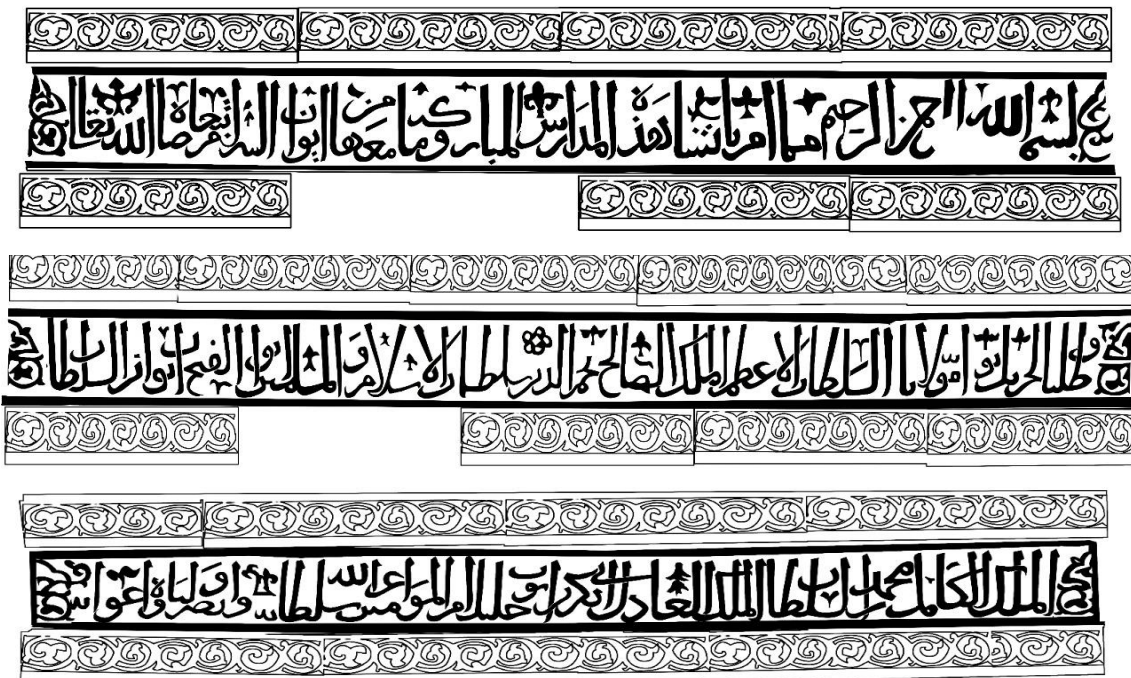 بسم الله الرحمن الرحيم مما امر بانشا هذه المدارس المباركة وما معها من ابواب البر ابتغاء مرضاة الله تعالى
وطلبا لجزيل ثوابه مولانا السلطان الاعظم الملك الصالح نجم الدين سلطان الاسلام والمسلمين ابو الفتح ايوب ابن السلطان
الملك الكامل محمد ابن السلطان الملك العادل ابي بكر ابن ايوب خليل امير المومنين اعز الله سلطانه ونصر اولياه واعوانه